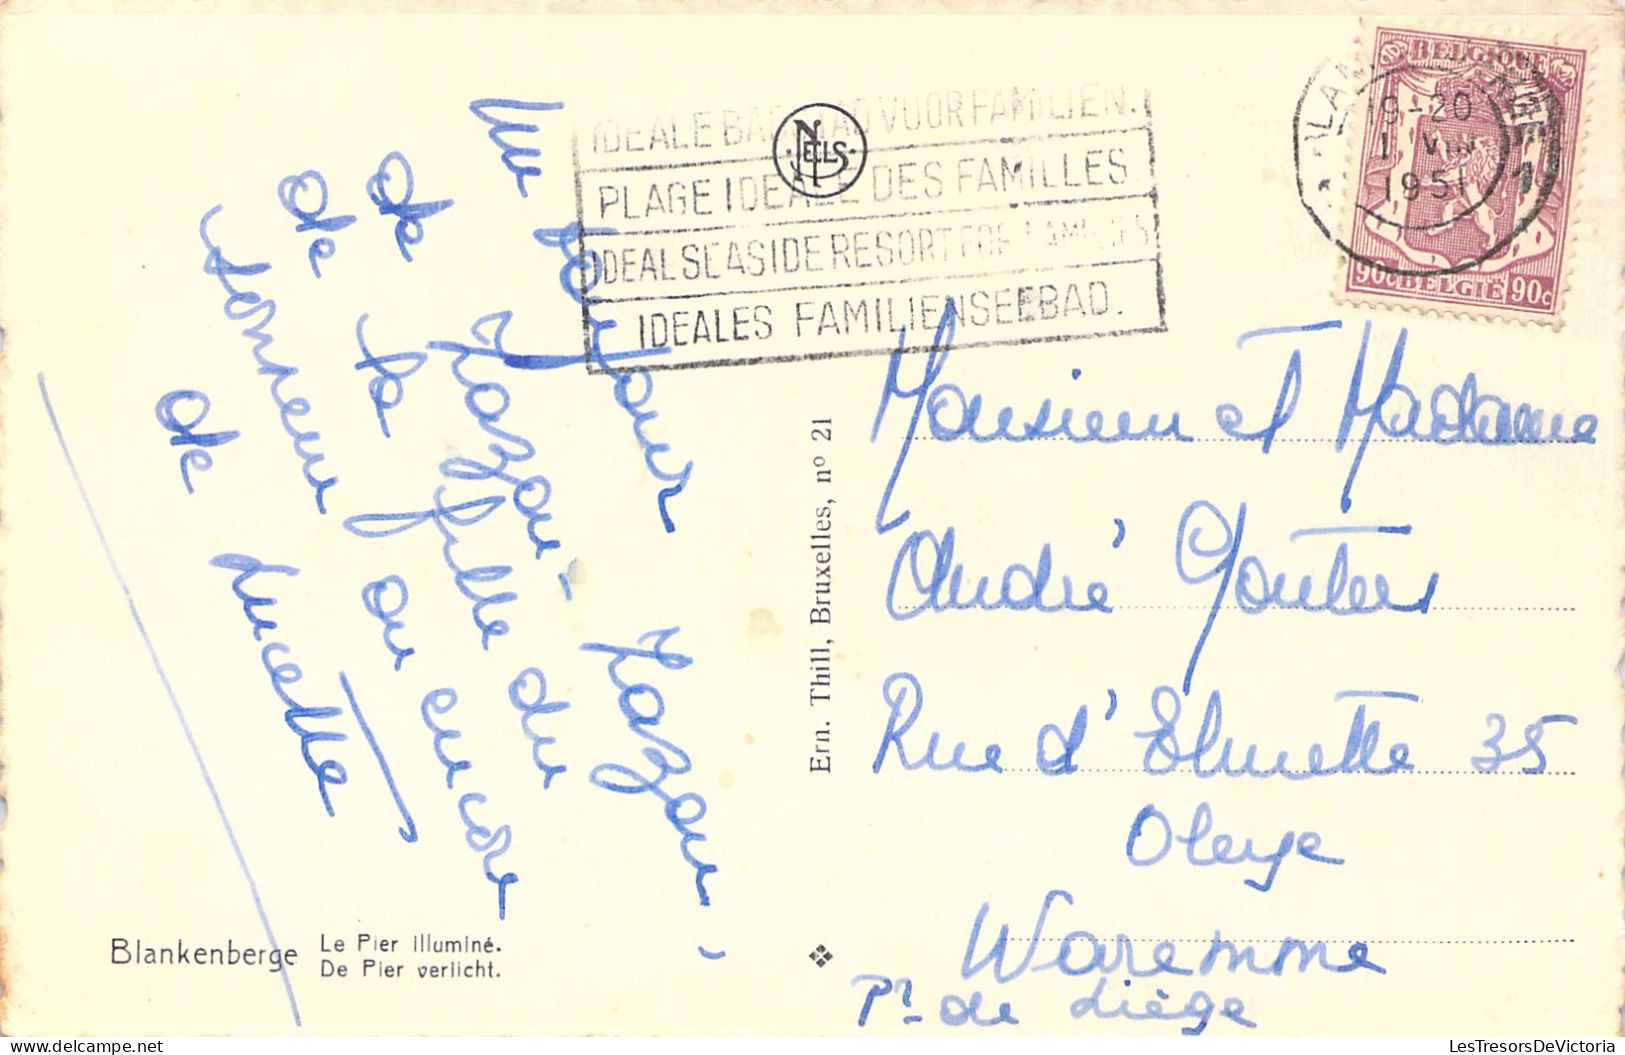 IDEALE BADSTAD VOOR FAMILIEN.
PLAGE IDEALE DES FAMILLES
IDEAL SEASIDE RESORT FOR FAMILIES
IDEALES FAMILIENSEEBAD.
NELS
BELGIQUE
19-20
1 VIII
1951
1
90c BELGIË 90c
Un bonjour
de Zazou - Zazou -
de la fille du
de ou encore
de Lucette
Ern. Thill, Bruxelles, nº 21
Monsieur et Madame
André Gouters
Rue d'Elmette 35
Oleye
Waremme
Pr de Liège
Blankenberge
Le Pier illuminé.
De Pier verlicht.
LesTresorsDeVictoria
www.delcampe.net